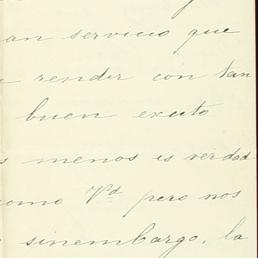 an servicio que
rendir con tan
buen exito
menos es verdad
como Vd pero nos
sinembargo, la